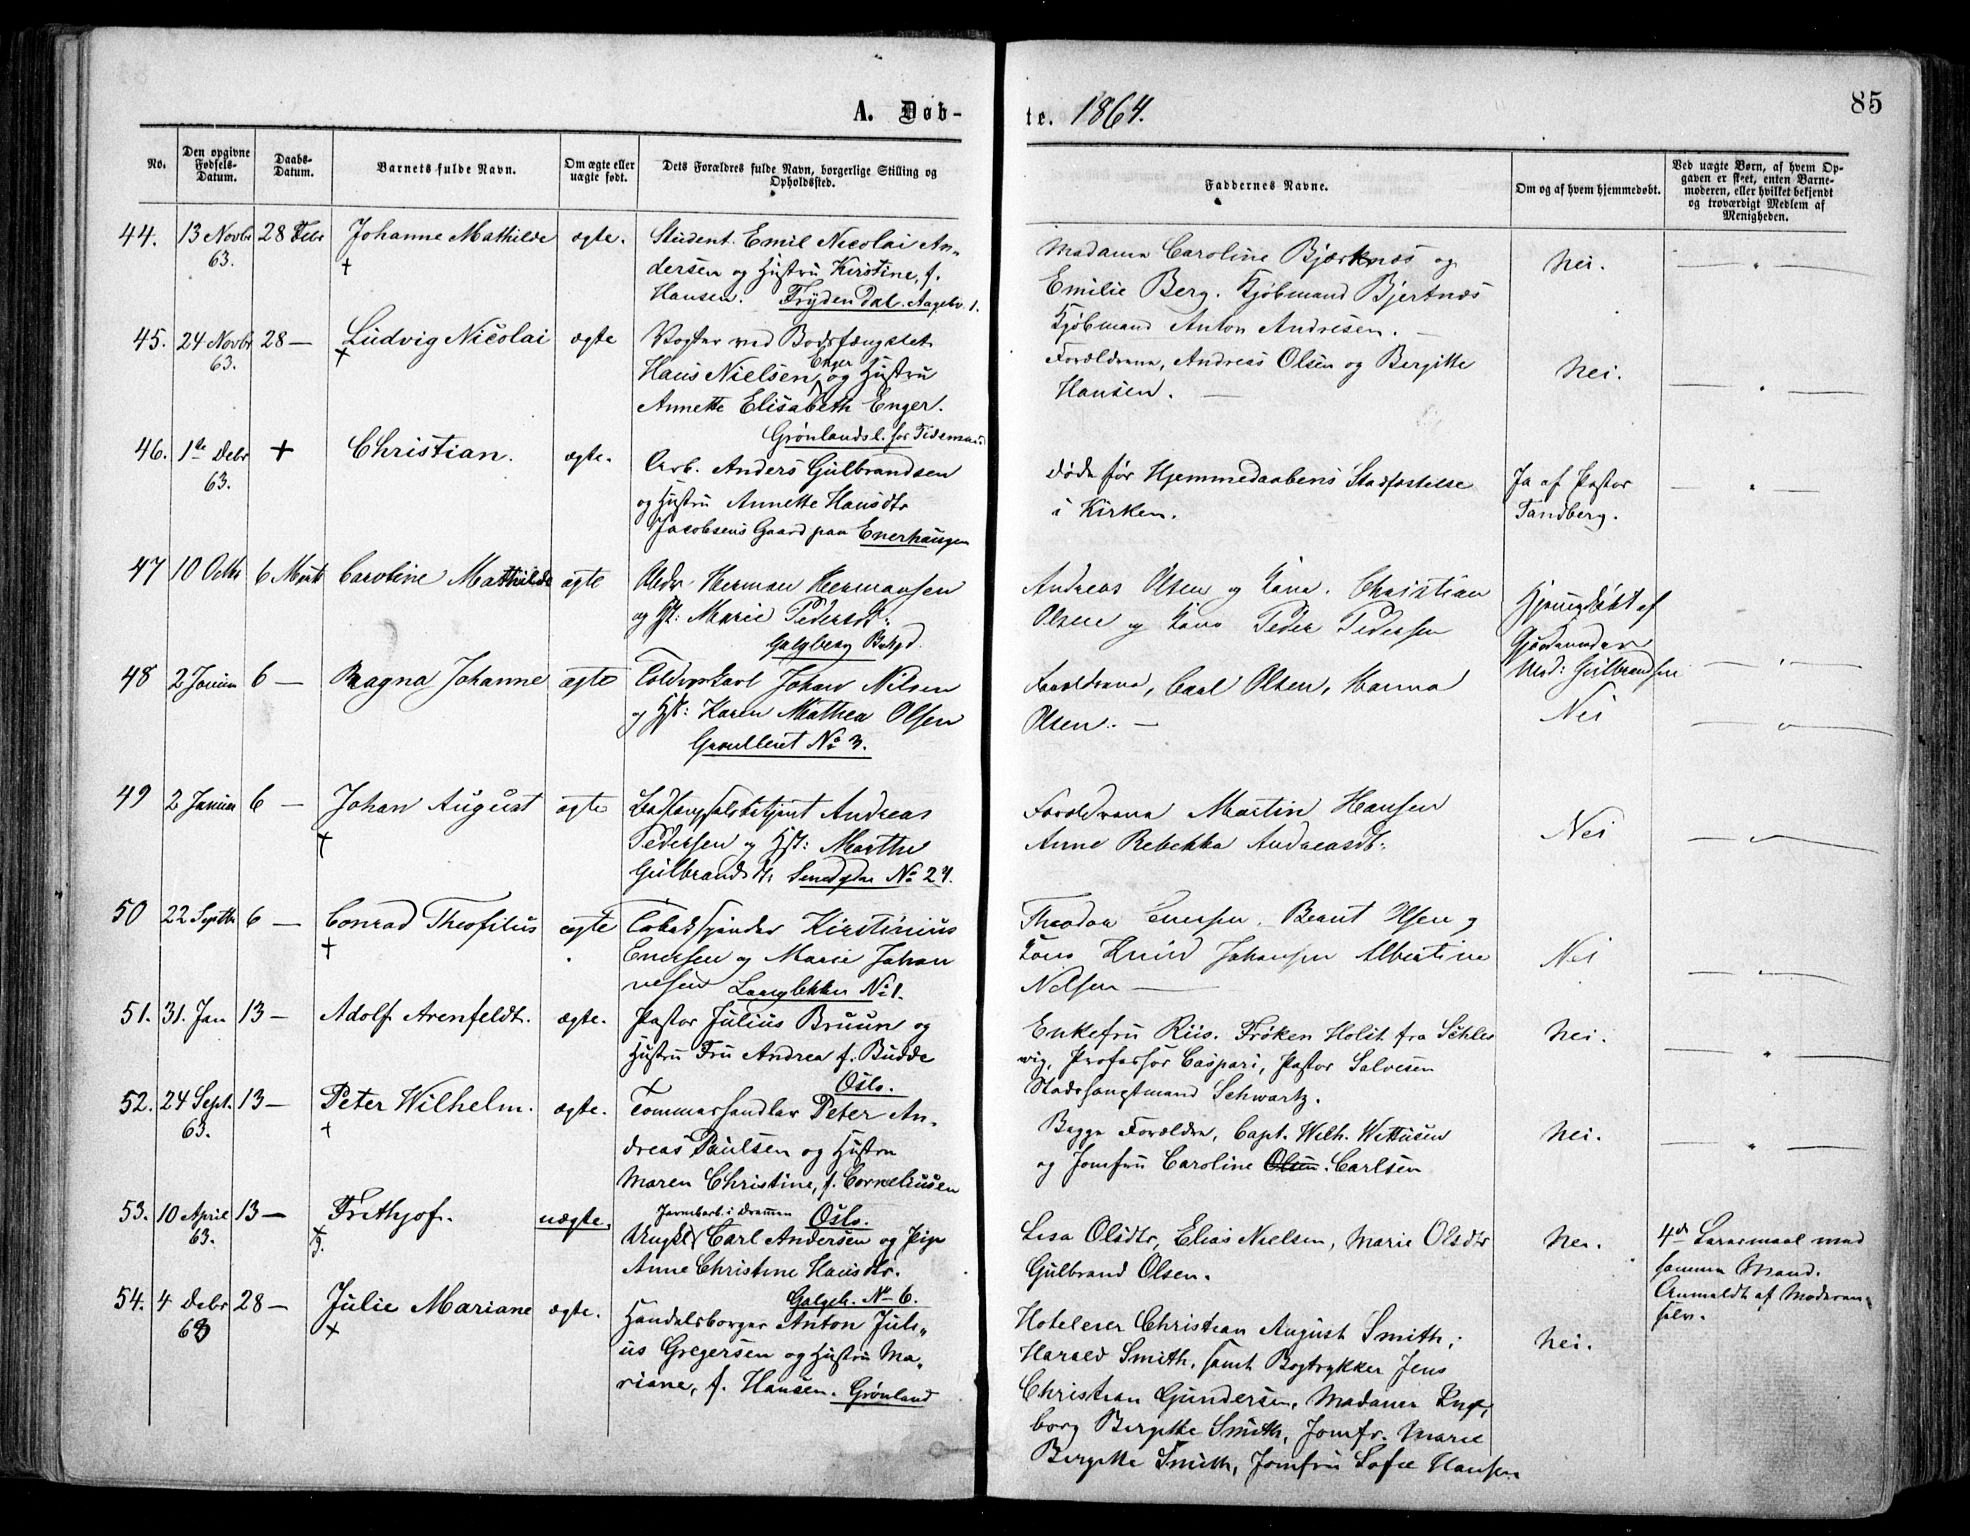 A. Døb-
te. 1864.
85
No.
Den opgivne Fødsels-Datum.
Daabs-Datum.
Barnets fulde Navn.
Om ægte eller uægte født.
Dets Forældres fulde Navn, borgerlige Stilling og Opholdssted.
Faddernes Navne.
Om og af hvem hjemmedøbt.
Ved uægte Børn, af hvem Opgaven er skeet, enten Barnemoderen, eller hvilket bekjendt og troværdigt Medlem af Menigheden.
44. 13 Novbr 63. 28 Febr Johanne Mathilde + ægte.
Student Emil Nicolai An-
dersen og Hustru Kirstine, f.
Hansen. Frydendal.
Madama Caroline Bjerknæs og
Emilie Berg. Kjøbmand Bjertnæs
Kjøbmand Anton Andresen. —
Nei.
45. 24 Novbr 63. 28 — Ludvig Nicolai + ægte
Vogter ved Bodsfængslet
Hans Nielsen Enger og Hustru
Annette Elisabeth Enger.
Grønlandsl. for Tidemand
Forældrene, Andreas Olsen og Bergitte
Hansen. —
Nei.
46. 1ste Debr 63. + Christian. ægte.
Arb. Anders Gulbrandsen
og Hustru Annette Hansdtr
Jacobsens Gaard paa Enerhaugen
Døde før Hjemmedaabens Stadfæstelse
i Kirken.
Ja af Pastor
Tandberg.
47 10 Octbr 6 Marts Caroline Mathilde ægte
Herman Hermansen
og Hst: Marie Pedersdt:
Galgberg
Andreas Olsen og Kone. Christian
Olsen og Kone Peder Pedersen
Hjemmedøbt af
Gjordemoder
Mad: Gulbrandsen
48 2 Januar 6 — Ragna Johanne ægte
Toldopskarl Johan Nilsen
og Hst: Karen Mathea Olsen
Grønlleret No 3.
Forældrene, Carl Olsen, Hanna
Olsen. —
Nei
49 2 Januar 6 — Johan August + ægte
Andreas
Pedersen og Hst: Marthe
Gulbrandsdt. Smedgdn No 27.
Forældrene Martin Hansen
Anne Rebekka Andreasdt:
Nei
50 22 Septbr 6 — Conrad Theofilus + ægte
Tobakspinder Kirstinius
Enersen og Marie Johan
nesen Langlekken No 1.
Theodor Enersen. Bernt Olsen og
Kone Knud Johansen Albertine
Nelsen —
Nei
51. 31. Jan 13 — Adolf Arenfeldt. ægte.
Pastor Julius Bruun og
Hustru Fru Andrea f. Budde
Oslo.
Enkefru Riis. Frøken Holst fra Schles
wig, Professor Caspari, Pastor Salvesen
Stadshauptmand Schwartz.
Nei.
52. 24 Sept. 63. 13 — Peter Wilhelm. + ægte.
Tømmerhandler Peter An-
dreas Paulsen og Hustru
Maren Christine, f. Corneliusen
Oslo.
Begge Forældre, Capt. Wilh. Wettusen
og Jomfru Caroline Olsen. Carlsen
Nei.
53. 10 April 63. 13 — Frithjof. uægte.
Jernbarb. i Dramen
Ungkl Carl Andersen og Pige
Anne Christine Hansdtr.
Galgeb. No 6.
Lisa Olsdtr, Elias Nielsen, Marie Olsdtr
Gulbrand Olsen.
Nei.
4de Leiermaal med
samme Mand.
Anmeldt af Moderen
selv.
54. 4 Debr 63 28 — Julie Mariane + ægte.
Handelsborger Anton Juli-
us Gregersen og Hustru Ma-
riane, f. Hansen. Grønland
Hotelerer Christian August Smith,
Harald Smith, samt Bogtrykker Jens
Christian Gundersen, Madama Inge-
borg Bergitte Smith, Jomfr. Marie
Bergitte Smith, Jomfru Sofie Hansen
Nei.